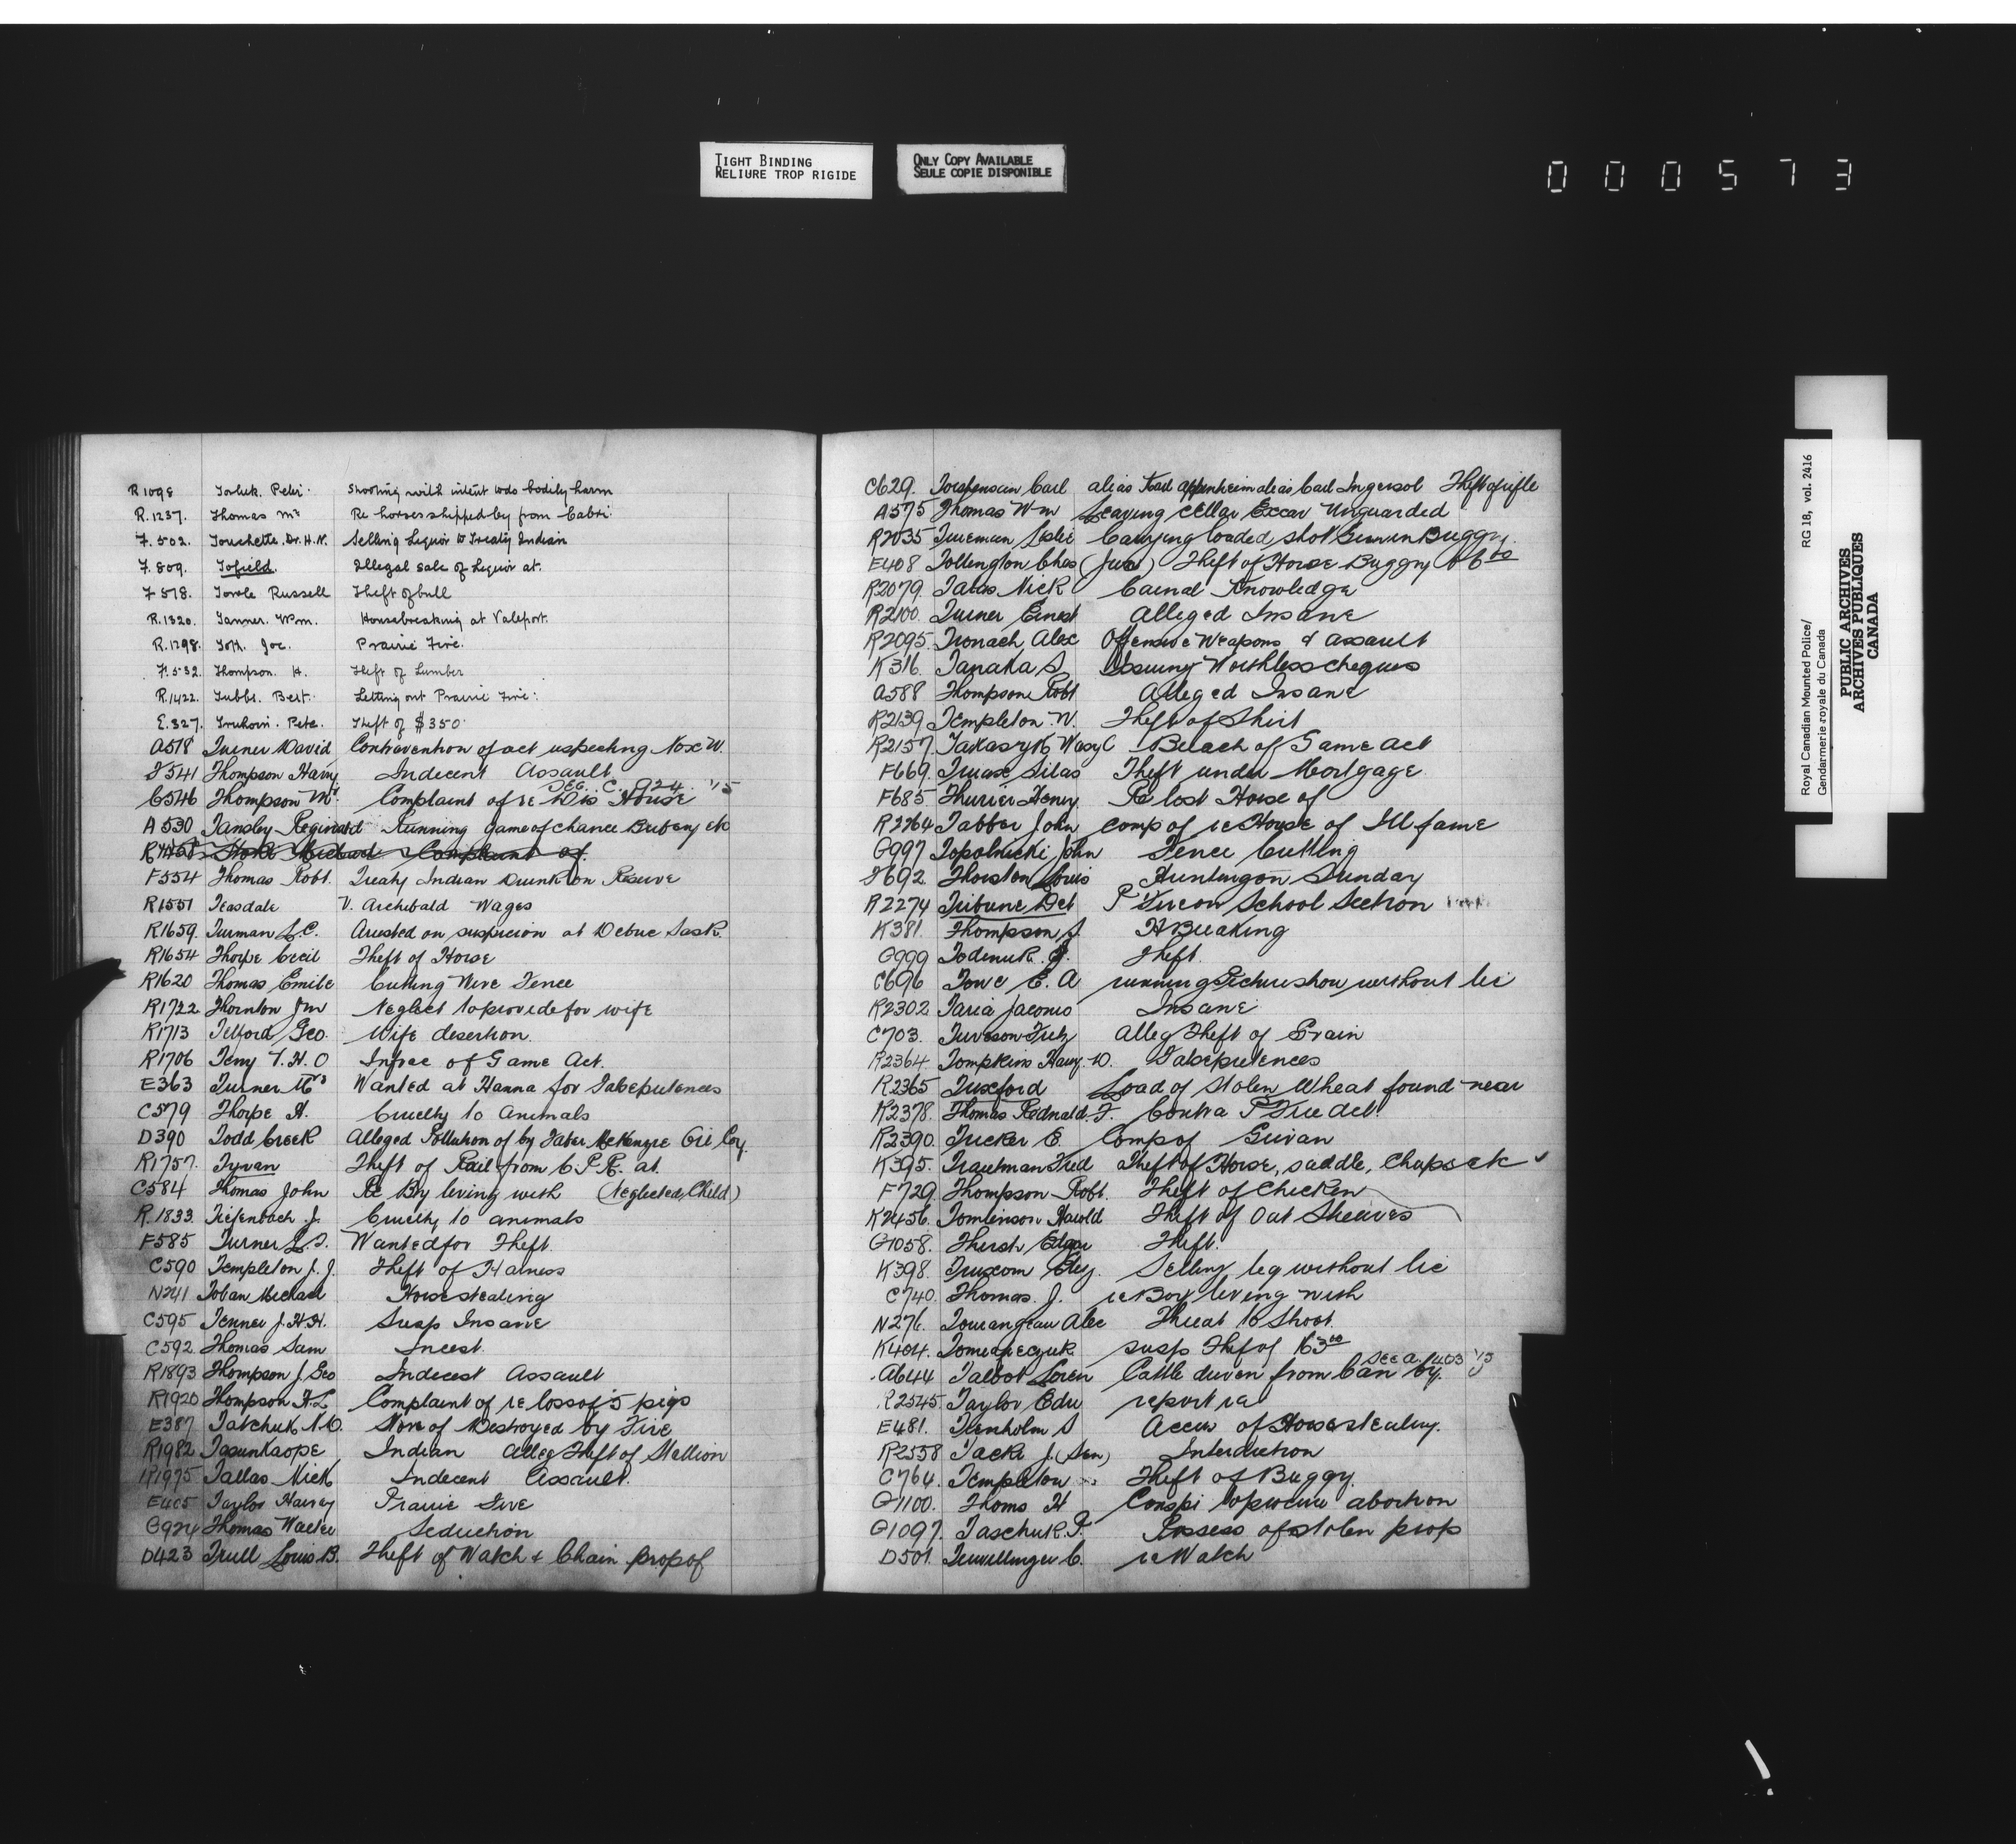 TIGHT BINDING
RELIURE TROP RIGIDE
ONLY COPY AVAILABLE
SEULE COPIE DISPONIBLE
000573
R1098 Peter Shooting with intent to do bodily harm
R.1237. Thomas Mr Re horses shipped by from Cabri
F.502. Touchette. Dr. H.N. Selling Liquor to Treaty Indian
F.509. Tofield Illegal sale of Liquor at.
F518. Towle Russell Theft of bull
R.1320. Tanner. Wm. Housebreaking at Valeport.
R.1298. Toth. Joe. Prairie Fire.
F.532. Thompson. H. Theft of Lumber
R.1422. Tubbs. Bert. Letting out Prairie Fire.
E.327. Pete. Theft of $350
A518 Turner David Contravention of act respecting Nox W.
F541 Thompson Harry Indecent Assault
SEE. C. 924. '15
C546 Thompson Mr. Complaint of re Dis House
A530 Tansley Reginald Running game of chance Bribery etc
F554 Thomas Robt. Treaty Indian Drunk on Reserve
R1551 Teasdale V. Archibald Wages
R1659. Turman L.C. Arrested on suspicion at Debuc Sask.
R1654 Thorpe Cecil Theft of Horse
R1620 Thomas Emile Cutting Wire Fence
R1722 Thornton Jm Neglect to provide for wife
R1713 Telford Geo. Wife desertion.
R1706 T.H.O Infrac of Game Act.
E363 Turner Mrs Wanted at Hanna for False pretences
C579 Thorpe H. Cruelty to animals
D390 Todd Creek Alleged Pollution of by Faber McKenzie Oil Coy.
R1757. Tyvan Theft of Rail from C.P.R. at.
C584 Thomas John Re Boy living with (Neglected Child)
R.1833. Tiefenbach J. Cruelty to animals
F585 Turner L.J. Wanted for Theft.
C590 Templeton J.J. Theft of Harness
N241 Toban Michael Horse stealing
C595 Tenner J.H.H. Susp Insane
C592 Thomas Sam Incest.
R1893 Thompson J. Geo Indecent Assault
R1920 Thompson H.L Complaint of re loss of 5 pigs
E387 Tatchuk N.C. Store of Destroyed by Fire
R1982 Tasunkaope Indian Alleg Theft of Stallion
R1975 Tallas Nick Indecent Assault.
E405 Taylor Harvey Prairie Fire
G924 Thomas Walter Seduction
D423 Trull Louis B. Theft of Watch & Chain prop of
C629. Carl alias Carl Ingersol Theft of rifle
A575 Thomas Wm Leaving Cellar Excav Unguarded
R2035 Trueman Leslie Carrying loaded shot Gun in Buggy.
E408 Tollington Chas Theft of Horse Buggy
R2079. Tatas Nick Carnal Knowledge
R2100. Turner Ernest Alleged Insane
R2095. Tronach Alex Offensive Weapons & assault
K316. Tanaka S. Issuing Worthless cheques
A588 Thompson Robt Alleged Insane
R2139 Templeton W. Theft of Shirt
R2157. Takaszyk Wasyl Breach of Game Act
F669. Truax Silas Theft under Mortgage
F685. Thurier Henry. Re lost Horse of
R2264 Tabber John Comp of re House of Ill fame
G997 Topolnicki John Fence Cutting
F692. Thorston Louis Hunting on Sunday
R2274 Tribune Det P Fire on School Section
K381. Thompson J. H Breaking
G999 Todemuk. J. Theft.
C696 Towe E. A running Picture show without lic
R2302 Taria Jacomo Insane
C703. Turvson Fritz Alleg Theft of Grain
R2364. Tompkins Harry. D. False pretences
R2365 Tuxford Load of stolen Wheat found near
R2378. Thomas Rednald. F. Contra P Fire act
R2390. Tucker E. Comp of Girvan
K395. Trautman Fred Theft of Horse, saddle, Chaps etc
F729. Thompson Robt. Theft of Chicken
R2456. Tomlinson Harold Theft of Oat Sheaves
G1058. Thersh Edgar Theft.
K398. Truxom Selling liq without lic
C740. Thomas. J. re Boy living with
N276. Tourangeau Alec Threat to Shoot.
K404. susp Thef of
SEE A. 403 '15
A644 Talbot Loren Cattle driven from Can by.
R2545. Taylor Edw report re
E481. Trenholm S Accus of Horse stealing.
R2558 Tacke J. (Sen) Interdiction
C764. Templeton Theft of Buggy.
G1100. Thoms H Conspi to procure abortion
G1097. Taschuk. P. Possess of stolen prop
D501. Terwillinger C. re Watch
Royal Canadian Mounted Police/
Gendarmerie royale du Canada
RG 18, vol. 2416
PUBLIC ARCHIVES
ARCHIVES PUBLIQUES
CANADA